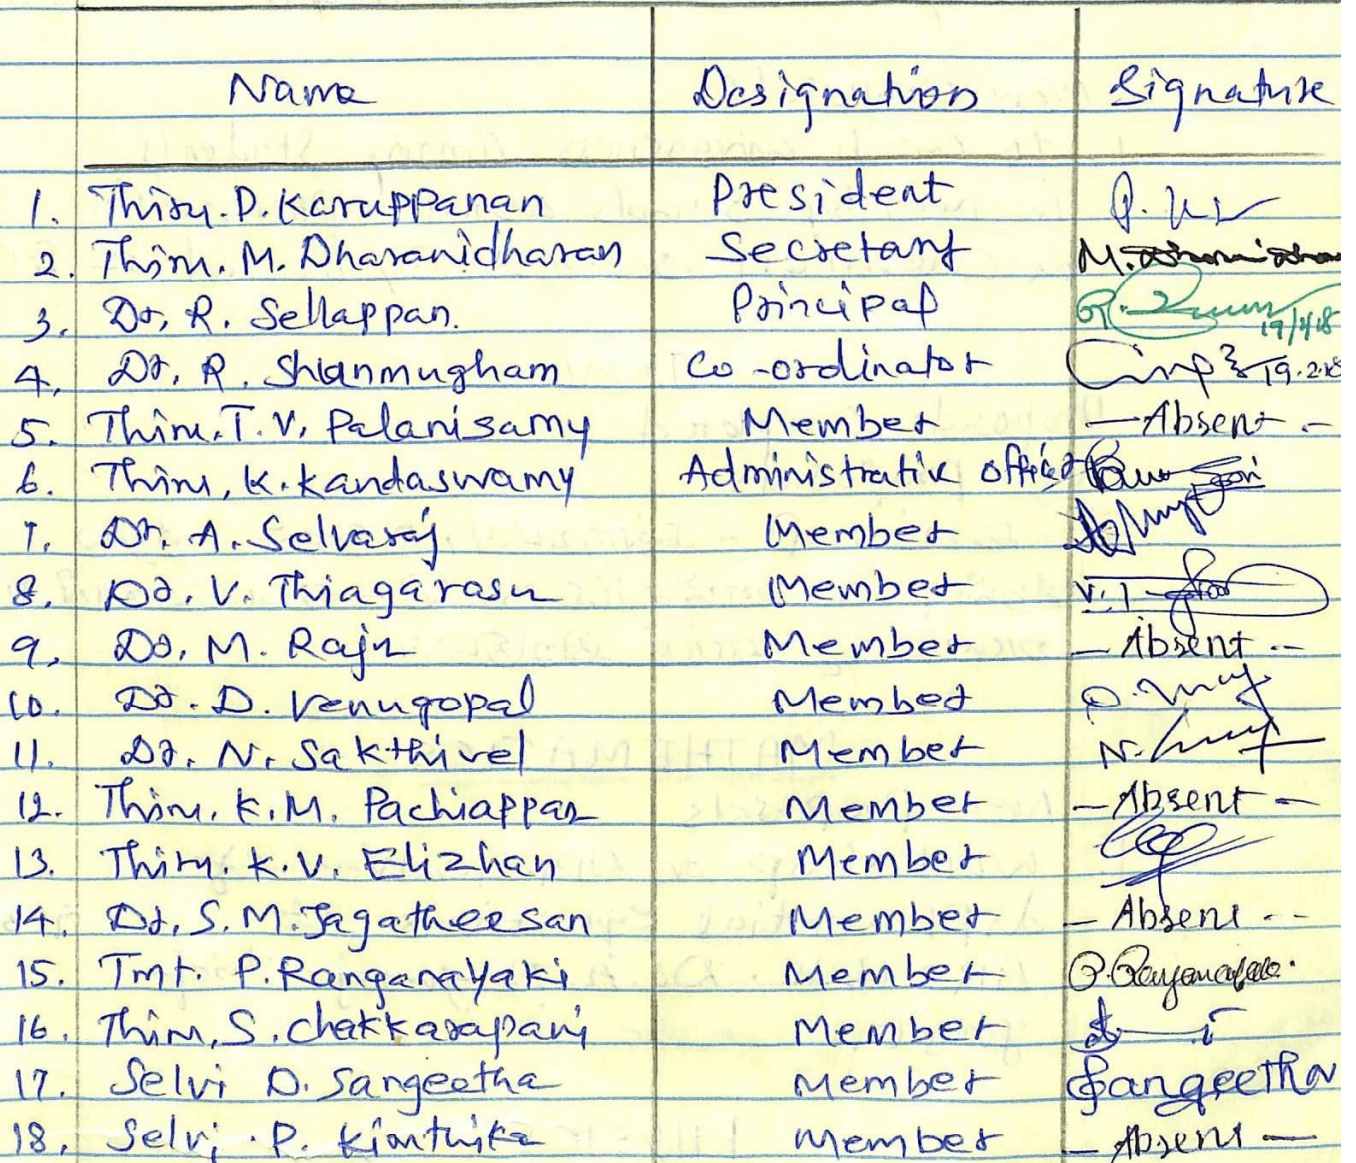 Name Designation Signature
1. Thiru. P. Karuppanan President
2. Thiru. M. Dharanidharan Secretary
3. Dr. R. Sellappan. Principal 19/2/18
4. Dr. R. Shanmugham Co-ordinator 19.2.18
5. Thiru. T. V. Palanisamy Member - Absent -
6. Thiru. K. Kandaswamy Administrative officer
7. Dr. A. Selvaraj Member
8. Dr. V. Thiagarasu Member
9. Dr. M. Raju Member - Absent --
10. Dr. D. Venugopal Member
11. Dr. N. Sakthivel Member
12. Thiru. K. M. Pachiappan Member - Absent -
13. Thiru K. V. Elizhan Member
14. Dr. S. M. Jagatheesan Member - Absent --
15. Tmt. P. Ranganayaki Member
16. Thiru. S. Chakkarapani Member
17. Selvi D. Sangeetha Member Sangeetha
18. Selvi. P. Member - Absent -